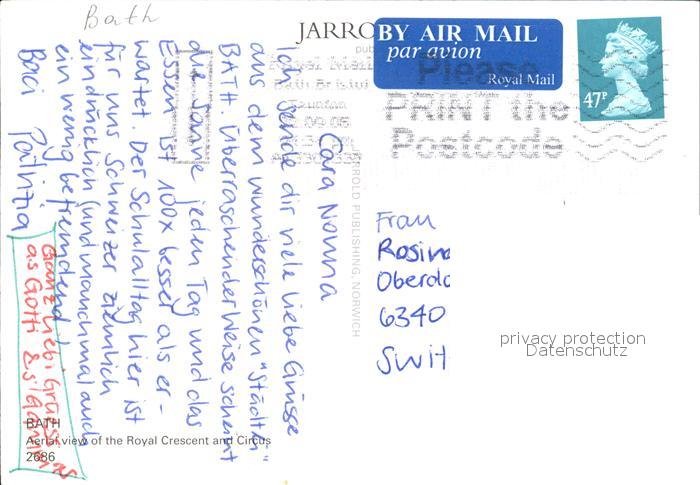 Bath
JARRO
BY AIR MAIL
par avion
Royal Mail
47P
Royal Mail
Bath Bristol
Taunton
Please
PRINT the
Postcode
Cara Nonna
Ich sende dir viele liebe Grüsse
aus dem wunderschönen "Städtli"
BATH. Überraschenderweise scheint
die Sonne jeden Tag und das
Essen ist 100x besser als er-
wartet. Der Schulalltag hier ist
für uns Schweizer ziemlich
eindrücklich (und manchmal auch
ein wenig befremdend)
Baci Patrizia
Ganz liebi Grüessli
as Gotti & s'
Frau
Rosin
Oberdo
6340
Swit
privacy protection
Datenschutz
JARROLD PUBLISHING, NORWICH
BATH
Aerial view of the Royal Crescent and Circus
2686